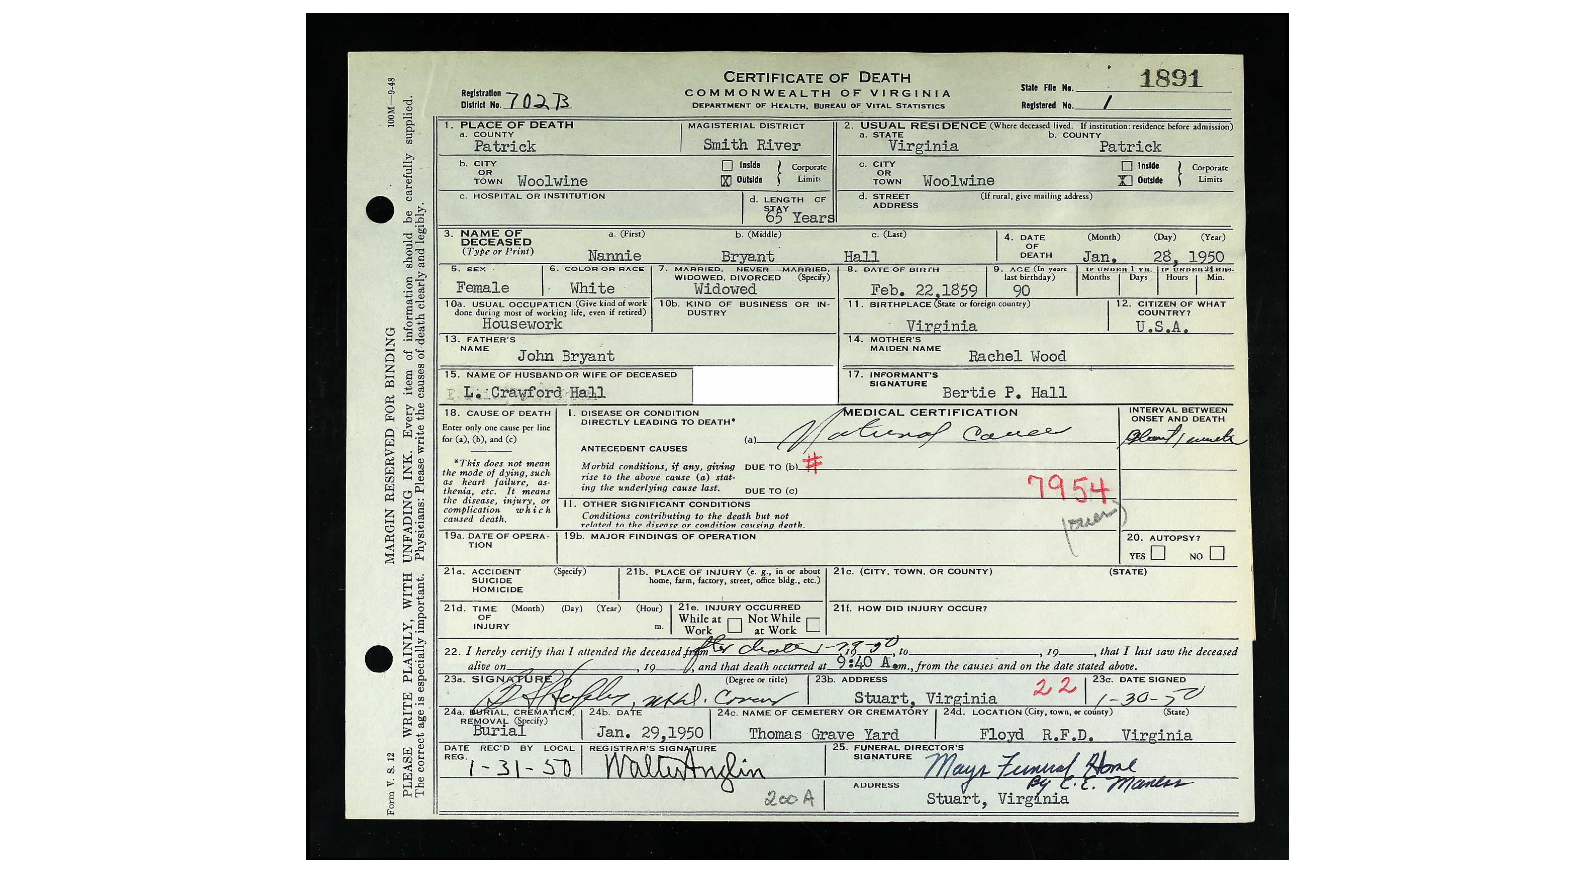 CERTIFICATE OF DEATH
COMMONWEALTH OF VIRGINIA
DEPARTMENT OF HEALTH, BUREAU OF VITAL STATISTICS
Registration District No. 702B
State File No. 1891
Registered No. 1
100M—9-48
MARGIN RESERVED FOR BINDING
PLEASE WRITE PLAINLY, WITH UNFADING INK. Every item of information should be carefully supplied.
The correct age is especially important. Physicians: Please write the causes of death clearly and legibly.
Form V. S. 12
1. PLACE OF DEATH
a. COUNTY
Patrick
MAGISTERIAL DISTRICT
Smith River
2. USUAL RESIDENCE (Where deceased lived. If institution: residence before admission)
a. STATE
Virginia
b. COUNTY
Patrick
b. CITY OR TOWN Woolwine
Inside
X Outside
Corporate Limits
c. CITY OR TOWN Woolwine
Inside
X Outside
Corporate Limits
c. HOSPITAL OR INSTITUTION
d. LENGTH OF STAY
65 Years
d. STREET ADDRESS
(If rural, give mailing address)
3. NAME OF DECEASED
(Type or Print)
a. (First)
Nannie
b. (Middle)
Bryant
c. (Last)
Hall
4. DATE OF DEATH
(Month) (Day) (Year)
Jan. 28, 1950
5. SEX
Female
6. COLOR OR RACE
White
7. MARRIED, NEVER MARRIED, WIDOWED, DIVORCED (Specify)
Widowed
8. DATE OF BIRTH
Feb. 22,1859
9. AGE (In years last birthday)
90
IF UNDER 1 YR.
Months Days
IF UNDER 24 HRS.
Hours Min.
10a. USUAL OCCUPATION (Give kind of work done during most of working life, even if retired)
Housework
10b. KIND OF BUSINESS OR INDUSTRY
11. BIRTHPLACE (State or foreign country)
Virginia
12. CITIZEN OF WHAT COUNTRY?
U.S.A.
13. FATHER'S NAME
John Bryant
14. MOTHER'S MAIDEN NAME
Rachel Wood
15. NAME OF HUSBAND OR WIFE OF DECEASED
L. Crawford Hall
17. INFORMANT'S SIGNATURE
Bertie P. Hall
18. CAUSE OF DEATH
Enter only one cause per line for (a), (b), and (c)
*This does not mean the mode of dying, such as heart failure, asthenia, etc. It means the disease, injury, or complication which caused death.
MEDICAL CERTIFICATION
I. DISEASE OR CONDITION DIRECTLY LEADING TO DEATH*
(a) Natural Causes
ANTECEDENT CAUSES
Morbid conditions, if any, giving rise to the above cause (a) stating the underlying cause last.
DUE TO (b) #
DUE TO (c)
7954
II. OTHER SIGNIFICANT CONDITIONS
Conditions contributing to the death but not related to the disease or condition causing death.
INTERVAL BETWEEN ONSET AND DEATH
19a. DATE OF OPERATION
19b. MAJOR FINDINGS OF OPERATION
20. AUTOPSY?
YES NO
21a. ACCIDENT SUICIDE HOMICIDE (Specify)
21b. PLACE OF INJURY (e. g., in or about home, farm, factory, street, office bldg., etc.)
21c. (CITY, TOWN, OR COUNTY) (STATE)
21d. TIME OF INJURY (Month) (Day) (Year) (Hour) m.
21e. INJURY OCCURRED
While at Work Not While at Work
21f. HOW DID INJURY OCCUR?
22. I hereby certify that I attended the deceased from after death 1-28-50, to , 19 , that I last saw the deceased
alive on , 19 , and that death occurred at 9:40 A m., from the causes and on the date stated above.
23a. SIGNATURE (Degree or title)
M.D. Coroner
23b. ADDRESS
Stuart, Virginia
22
23c. DATE SIGNED
1-30-50
24a. BURIAL, CREMATION, REMOVAL (Specify)
Burial
24b. DATE
Jan. 29,1950
24c. NAME OF CEMETERY OR CREMATORY
Thomas Grave Yard
24d. LOCATION (City, town, or county) (State)
Floyd R.F.D. Virginia
DATE REC'D BY LOCAL REG.
1-31-50
REGISTRAR'S SIGNATURE
Walter Anglin
200 A
25. FUNERAL DIRECTOR'S SIGNATURE
Mays Funeral Home
By C.E. Maness
ADDRESS
Stuart, Virginia